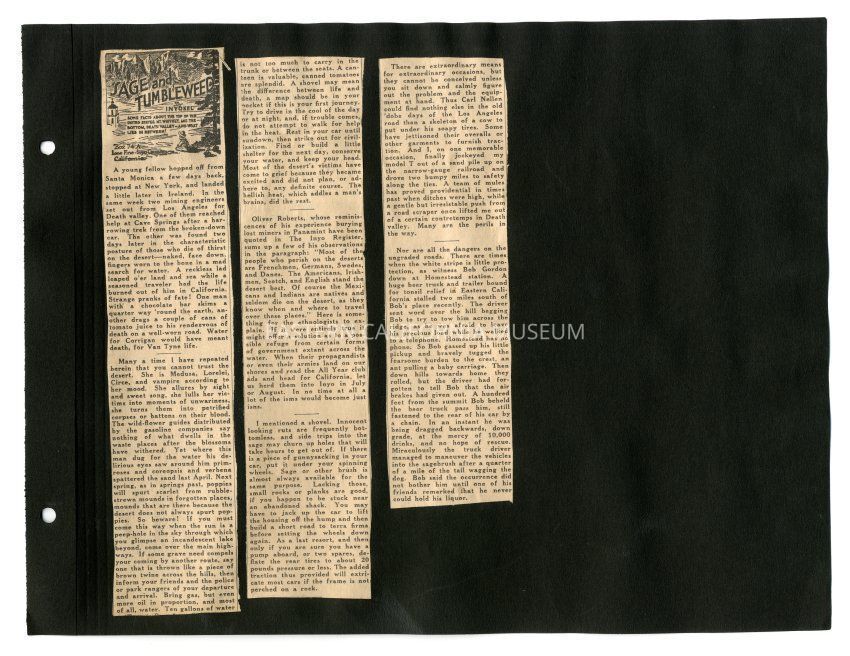 SAGE and
TUMBLEWEED
IN INYOKEL
SOME FACTS ABOUT THE TOP OF THE
UNITED STATES, MT. WHITNEY, AND THE
BOTTOM, DEATH VALLEY—AND WHAT
LIES IN BETWEEN!
Box 74 A
Lone Pine
California
A young fellow hopped off from
Santa Monica a few days back,
stopped at New York, and landed
a little later in Ireland. In the
same week two mining engineers
set out from Los Angeles for
Death valley. One of them reached
help at Cave Springs after a har-
rowing trek from the broken-down
car. The other was found two
days later in the characteristic
posture of those who die of thirst
on the desert—naked, face down,
fingers worn to the bone in a mad
search for water. A reckless lad
leaped o'er land and sea while a
seasoned traveler had the life
burned out of him in California.
Strange pranks of fate! One man
with a chocolate bar skims a
quarter way 'round the earth, an-
other drags a couple of cans of
tomato juice to his rendezvous of
death on a well-worn road. Water
for Corrigan would have meant
death, for Van Tyne life.
Many a time I have repeated
herein that you cannot trust the
desert. She is Medusa, Lorelei,
Circe, and vampire according to
her mood. She allures by sight
and sweet song, she lulls her vic-
tims into moments of unwariness,
she turns them into petrified
corpses or battens on their blood.
The wild-flower guides distributed
by the gasoline companies say
nothing of what dwells in the
waste places after the blossoms
have withered. Yet where this
man dug for the water his de-
lirious eyes saw around him prim-
roses and coreopsis and verbena
spattered the sand last April. Next
spring, as in springs past, poppies
will spurt scarlet from rubble-
strewn mounds in forgotten places,
mounds that are there because the
desert does not always spurt pop-
pies. So beware! If you must
come this way when the sun is a
peep-hole in the sky through which
you glimpse an incandescent lake
beyond, come over the main high-
ways. If some grave need compels
your coming by another route, say
one that is thrown like a piece of
brown twine across the hills, then
inform your friends and the police
or park rangers of your departure
and arrival. Bring gas, but even
more oil in proportion, and most
of all, water. Ten gallons of water
is not too much to carry in the
trunk or between the seats. A can-
teen is valuable, canned tomatoes
are splendid. A shovel may mean
the difference between life and
death, a map should be in your
pocket if this is your first journey.
Try to drive in the cool of the day
or at night, and, if trouble comes,
do not attempt to walk for help
in the heat. Rest in your car until
sundown, then strike out for civil-
ization. Find or build a little
shelter for the next day, conserve
your water, and keep your head.
Most of the desert's victims have
come to grief because they became
excited and did not plan, or ad-
here to, any definite course. The
hellish heat, which addles a man's
brains, did the rest.
Oliver Roberts, whose reminis-
cences of his experience burying
lost miners in Panamint have been
quoted in The Inyo Register,
sums up a few of his observations
in the paragraph: "Most of the
people who perish on the deserts
are Frenchmen, Germans, Swedes,
and Danes. The Americans, Irish-
men, Scotch, and English stand the
desert best. Of course the Mexi-
cans and Indians are natives and
seldom die on the desert, as they
know when and where to travel
over these places." Here is some-
thing for the ethnologists to ex-
plain. If it were entirely true it
might offer a solution and a pos-
sible refuge from certain forms
of government extant across the
water. When their propagandists
or even their armies land on our
shores and read the All Year club
ads and head for California, let
us herd them into Inyo in July
or August. In no time at all a
lot of the isms would become just
isms.
I mentioned a shovel. Innocent
looking ruts are frequently bot-
tomless, and side trips into the
sage may churn up holes that will
take hours to get out of. If there
is a piece of gunnysacking in your
car, put it under your spinning
wheels. Sage or other brush is
almost always available for the
same purpose. Lacking those,
small rocks or planks are good,
if you happen to be stuck near
an abandoned shack. You may
have to jack up the car to lift
the housing off the hump and then
build a short road to terra firma
before setting the wheels down
again. As a last resort, and then
only if you are sure you have a
pump aboard, or two spares, de-
flate the rear tires to about 20
pounds pressure or less. The added
traction thus provided will extri-
cate most cars if the frame is not
perched on a rock.
There are extraordinary means
for extraordinary occasions, but
they cannot be conceived unless
you sit down and calmly figure
out the problem and the equip-
ment at hand. Thus Carl Nellen
could find nothing else in the old
'dobe days of the Los Angeles
road than a skeleton of a cow to
put under his soapy tires. Some
have jettisoned their overalls or
other garments to furnish trac-
tion. And I, on one memorable
occasion, finally jockeyed my
model T out of a sand pile up on
the narrow-gauge railroad and
drove two bumpy miles to safety
along the ties. A team of mules
has proved providential in times
past when ditches were high, while
a gentle but irresistable push from
a road scraper once lifted me out
of a certain contretemps in Death
valley. Many are the perils in
the way.
Nor are all the dangers on the
ungraded roads. There are times
when the white stripe is little pro-
tection, as witness Bob Gordon
down at Homestead station. A
huge beer truck and trailer bound
for tonsil relief in Eastern Cali-
fornia stalled two miles south of
Bob's place recently. The driver
sent word over the hill begging
Bob to try to tow him across the
ridge, as he was afraid to leave
his precious load while he walked
to a telephone. Homestead has no
phone. So Bob gassed up his little
pickup and bravely tugged the
fearsome burden to the crest, an
ant pulling a baby carriage. Then
down hills towards home they
rolled, but the driver had for-
gotten to tell Bob that the air
brakes had given out. A hundred
feet from the summit Bob beheld
the beer truck pass him, still
fastened to the rear of his car by
a chain. In an instant he was
being dragged backwards, down
grade, at the mercy of 10,000
drinks, and no hope of rescue.
Miraculously the truck driver
managed to maneuver the vehicles
into the sagebrush after a quarter
of a mile of the tail wagging the
dog. Bob said the occurrence did
not bother him until one of his
friends remarked that he never
could hold his liquor.
MUSEUM